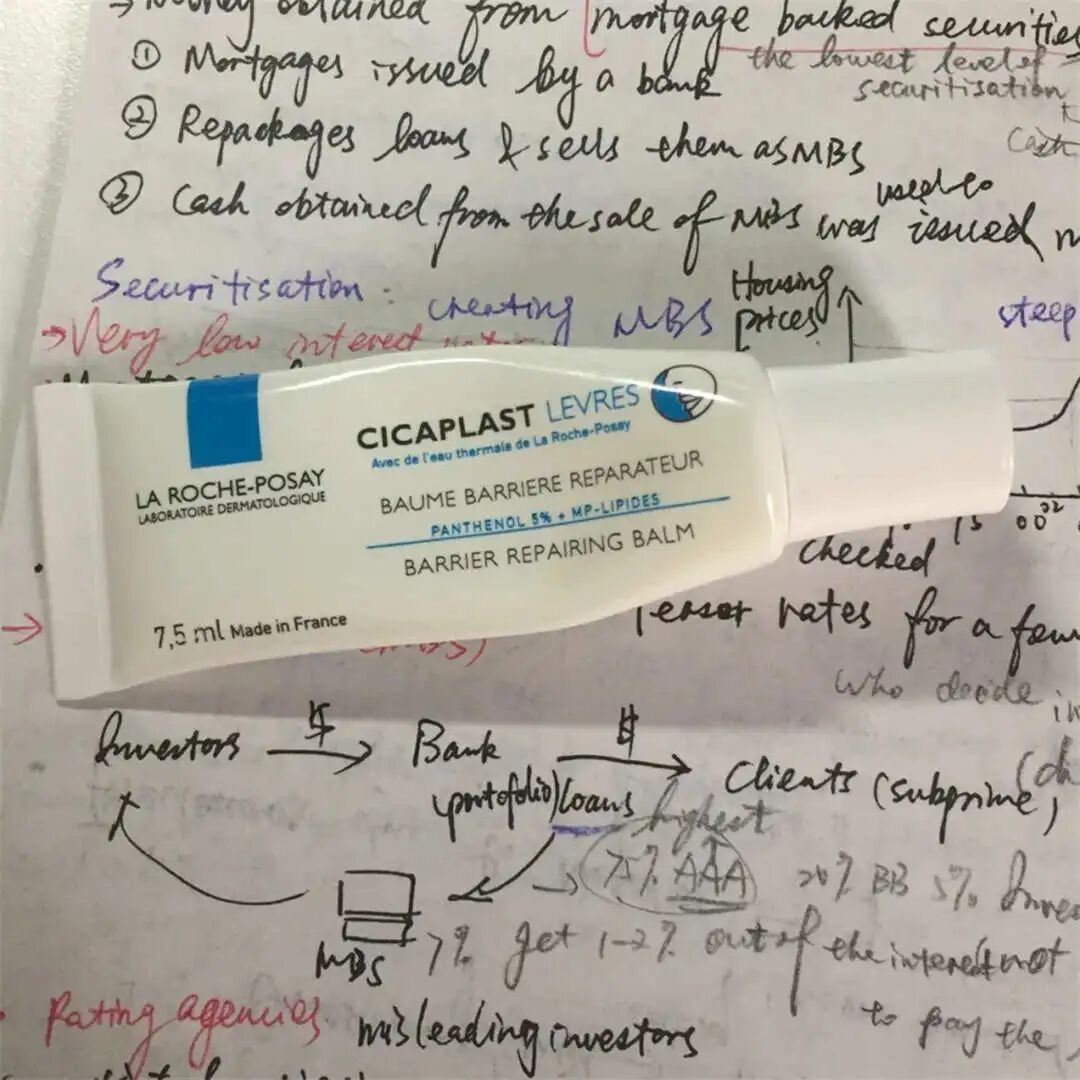 obtained from mortgage backed securities
① Mortgages issued by a bank
the lowest level of
securitisation
② Repackages loans & sells them as MBS
Cash
③ Cash obtained from the sale of MBS was issued
used to
Securitisation : creating MBS
Housing
prices
steep
→ Very low interest
LA ROCHE-POSAY
LABORATOIRE DERMATOLOGIQUE
CICAPLAST LEVRES
Avec de l'eau thermale de La Roche-Posay
BAUME BARRIERE REPARATEUR
PANTHENOL 5% + MP-LIPIDES
BARRIER REPAIRING BALM
7,5 ml Made in France
checked
Teaser rates for a few
who decide
Investors → $ Bank → $ Clients (subprime,
(portofolio) loans
highest
→ 75% AAA 20% BB 5%
MBS
7% get 1-2% out of the interest not
to pay the
Rating agencies misleading investors